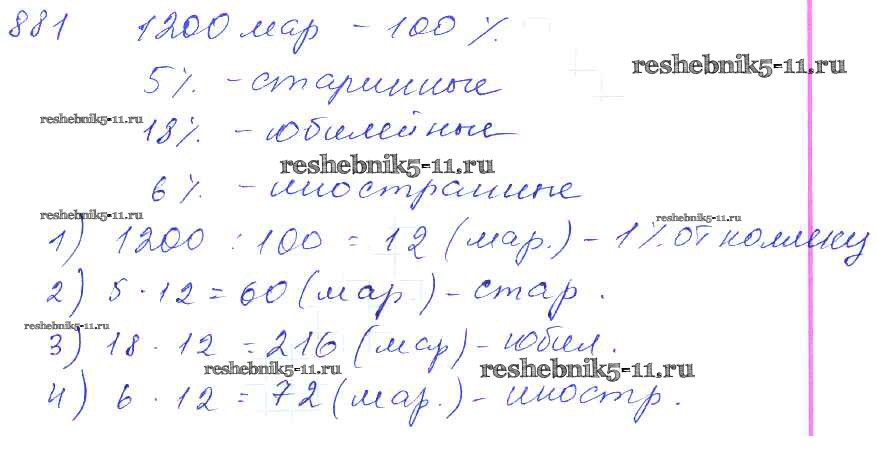 881 1200 мар - 100 %.
reshebnik5-11.ru
5 %. - старинные
reshebnik5-11.ru
18 %. - юбилейные
reshebnik5-11.ru
6 %. - иностранные
reshebnik5-11.ru
reshebnik5-11.ru
1) 1200 : 100 = 12 (мар.) - 1 % от коллекц
2) 5 · 12 = 60 (мар.) - стар.
reshebnik5-11.ru
3) 18 · 12 = 216 (мар) - юбил.
reshebnik5-11.ru
reshebnik5-11.ru
4) 6 · 12 = 72 (мар.) - иностр.